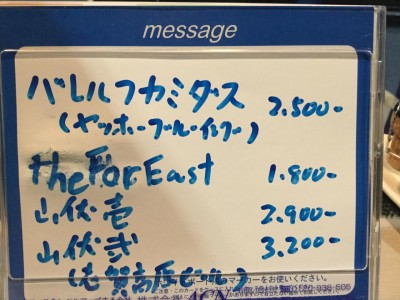 message
バレルフカミダス 2.500-
(ヤッホーブルーイング)
the Far East 1.800-
山伏・壱 2.900-
山伏・弐 3.200-
(志賀高原ビール)
マーカーをお使いください。